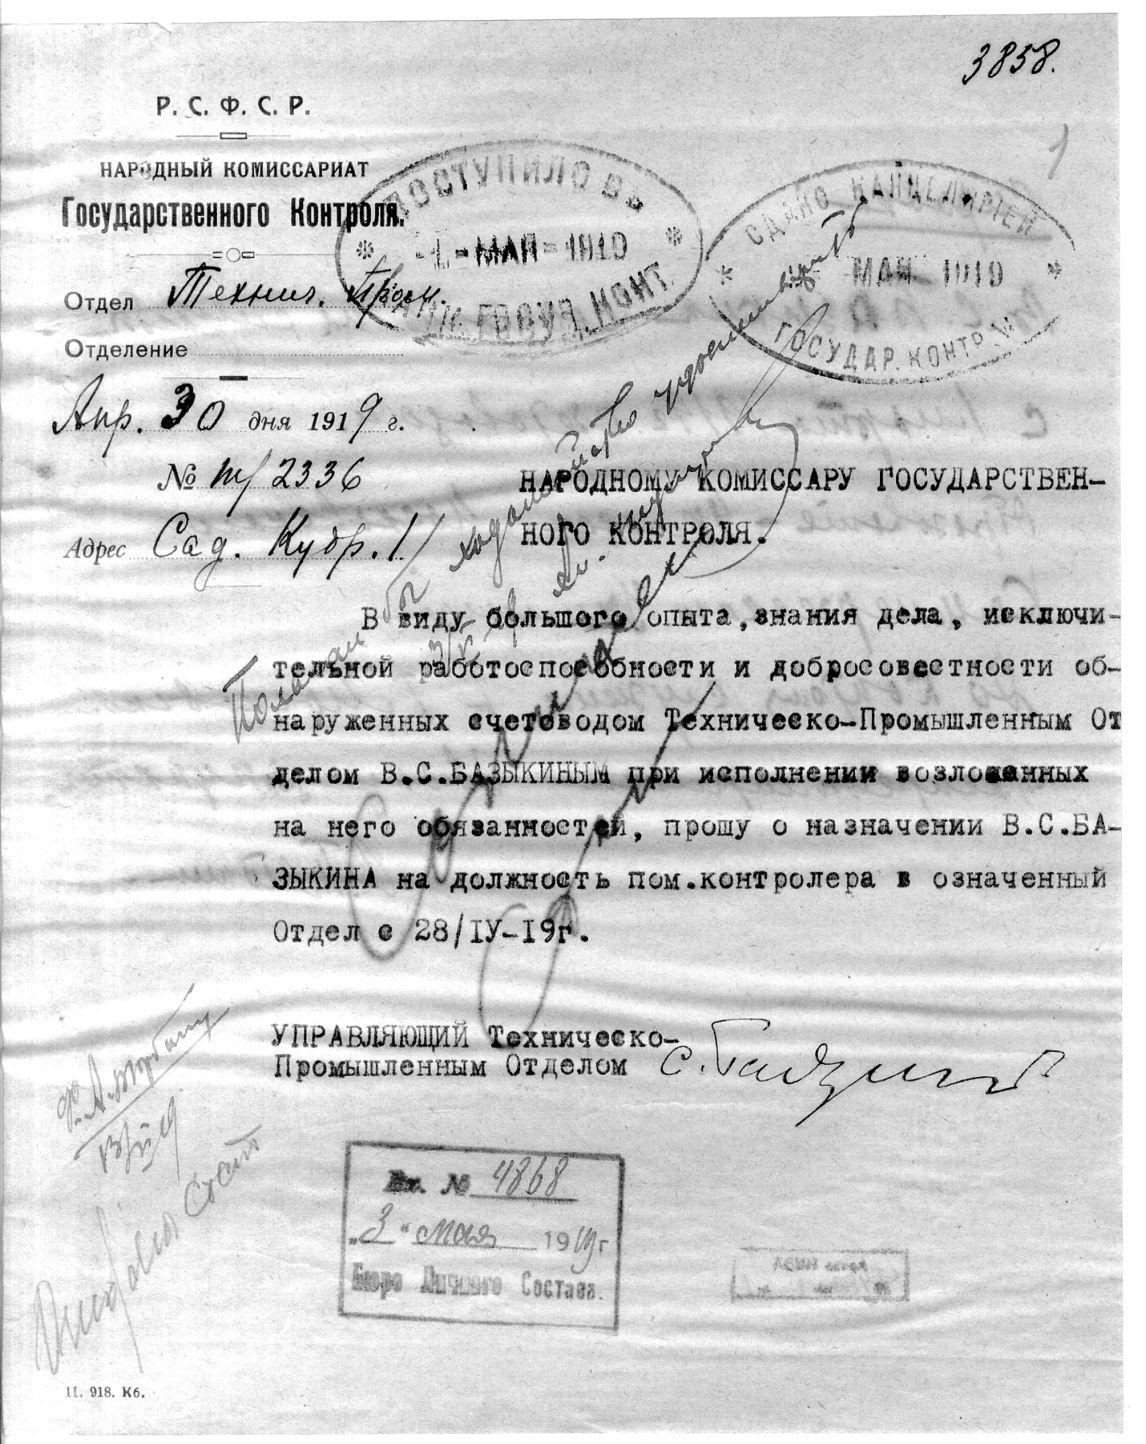 3858.
1
Р. С. Ф. С. Р.
НАРОДНЫЙ КОМИССАРИАТ
Государственного Контроля.
ПОСТУПИЛО ВЪ
* -1-МАЯ-1919 *
ГОСУД. КОНТ.
СДАНО КАНЦЕЛЯРІЕЙ
* МАЯ 1919 *
ГОСУДАР. КОНТР.
Отдел Технич. Пром.
Отделение
Апр. 30 дня 1919 г.
№ т/2336
Адрес Сад. Кудр. 1
НАРОДНОМУ КОМИССАРУ ГОСУДАРСТВЕН-
НОГО КОНТРОЛЯ.
Полагал бы ходатайство удовлетворить
В виду большого опыта, знания дела, исключи-
тельной работоспособности и добросовестности об-
наруженных счетоводом Техническо-Промышленным От
делом В.С.БАЗЫКИНЫМ при исполнении возложенных
на него обязанностей, прошу о назначении В.С.БА-
ЗЫКИНА на должность пом.контролера в означенный
Отдел с 28/IУ-19г.
УПРАВЛЯЮЩИЙ Техническо-
Промышленным Отделом
Вх. № 4868
„3" мая 1919 г
Бюро Личного Состава.
Личный Сост
11. 918. Кб.